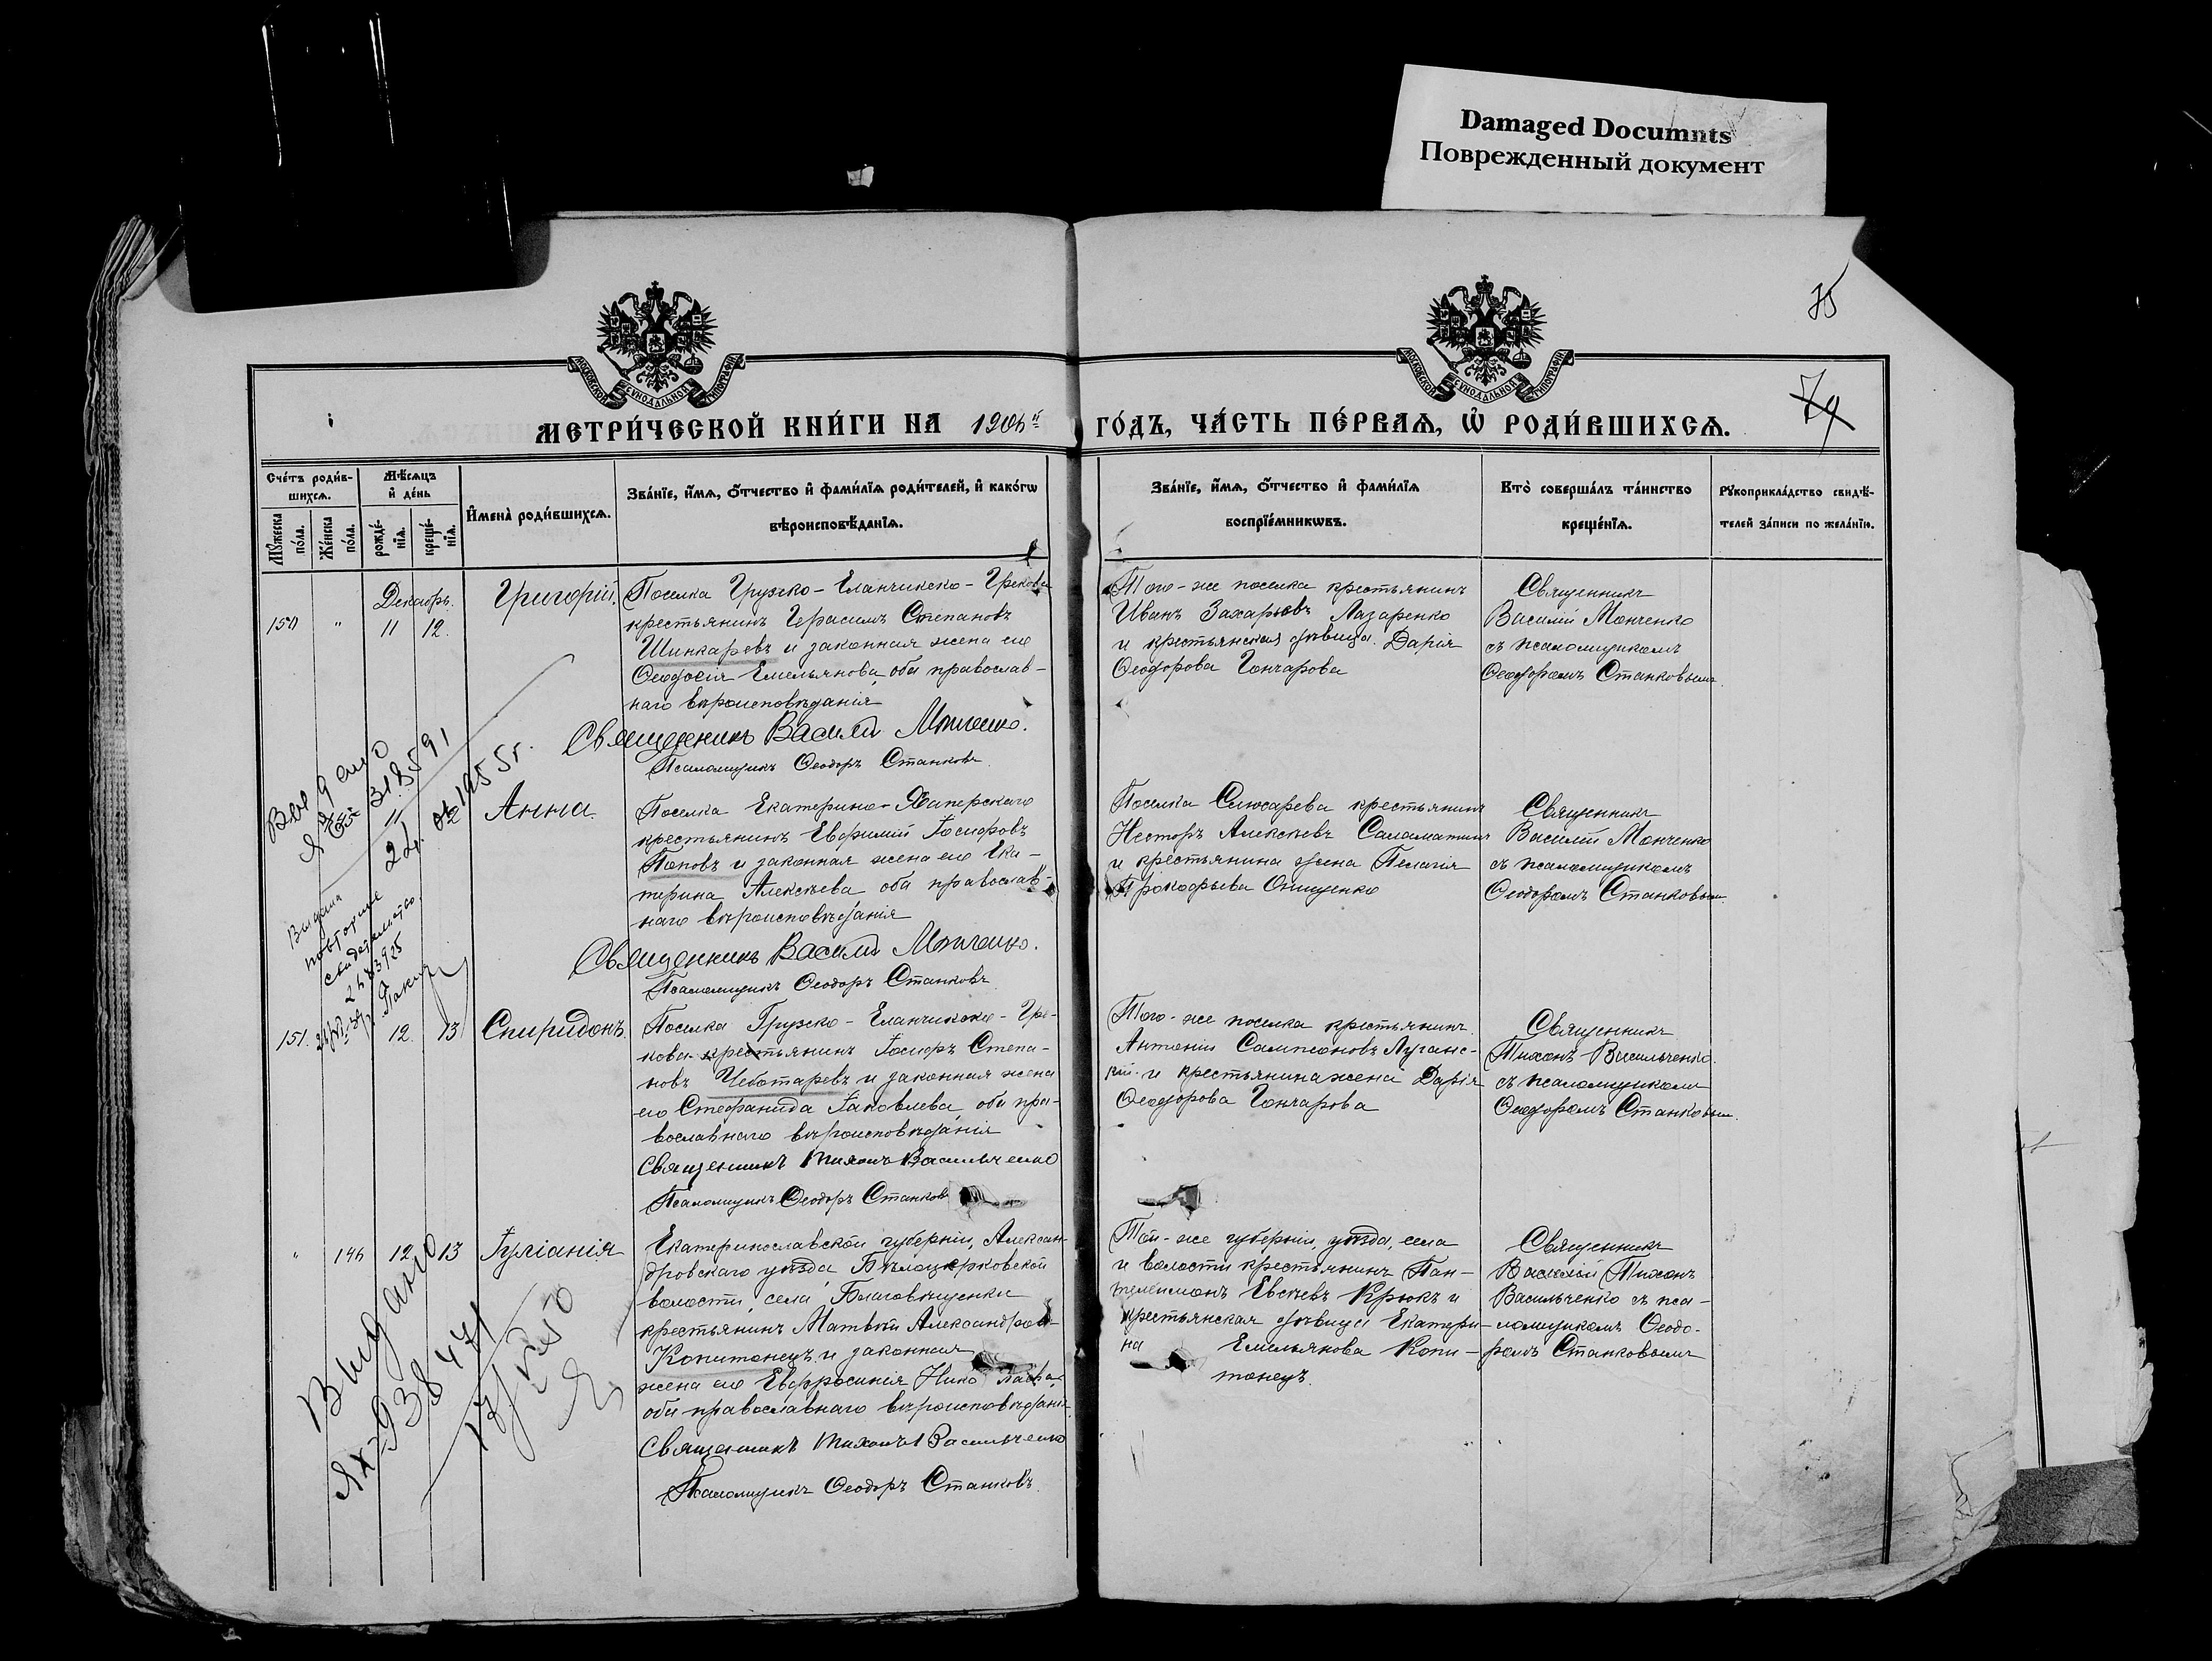 Damaged Documnts
Поврежденный документ
75
79
МОСКОВСКОЙ СѴНОДАЛЬНОЙ ТИПОГРАФІИ
МОСКОВСКОЙ СѴНОДАЛЬНОЙ ТИПОГРАФІИ
МЕТРИ́ЧЕСКОЙ КНИ́ГИ НА 190 ГО́ДЪ, ЧА́СТЬ ПЕ́РВАѦ, Ѡ҆ РОДИ́ВШИХСѦ.
Сче́тъ роди́в-
шихсѧ.
Мꙋ́жеска
по́ла.
Же́нска
по́ла.
Мѣ́сѧцъ
и҆ де́нь
рожде́-
нїѧ.
креще́-
нїѧ.
И҆мена̀ роди́вшихсѧ.
Зва́нїе, и҆́мѧ, ѻ҆́тчество и҆ фами́лїѧ роди́телей, и҆ како́гѡ
вѣроисповѣ́данїѧ.
Зва́нїе, и҆́мѧ, ѻ҆́тчество и҆ фами́лїѧ
воспрїе́мникѡвъ.
Кто̀ соверша́лъ та́инство
креще́нїѧ.
Рꙋкоприкла́дство свидѣ́-
телей за́писи по жела́нїю.
Декабрь.
150 " 11 12.
Григорій.
Поселка Грузско-Еланчикско-Грекова
крестьянинъ Герасимъ Степановъ
Шинкаревъ и законная жена его
Ѳеодосія Емельянова, оба православ-
наго вѣроисповѣданія
Священникъ Василій Монченко.
Псаломщикъ Ѳеодоръ Станковъ
Того-же поселка крестьянинъ
Иванъ Захарьевъ Лазаренко
и крестьянская дѣвица Дарія
Ѳеодорова Гончарова
Священникъ
Василій Монченко
съ псаломщикомъ
Ѳеодоромъ Станковымъ
1955г.
11
12
Анна.
Поселка Екатерино-Хаперскаго
крестьянинъ Евфимій Іосифовъ
Поповъ и законная жена его Ека-
терина Алексѣева оба православ-
наго вѣроисповѣданія
Священникъ Василій Монченко.
Псаломщикъ Ѳеодоръ Станковъ
Поселка Слюсарева крестьянинъ
Несторъ Алексѣевъ Саламатинъ
и крестьянина жена Пелагія
Прокофьева Онищенко
Священникъ
Василій Монченко
съ псаломщикомъ
Ѳеодоромъ Станковымъ
повторное
свидетельство
151. 12. 13
Спиридонъ
Поселка Грузско-Еланчикско-Гре-
кова крестьянинъ Іосифъ Степа-
новъ Чеботаревъ и законная жена
его Стефанида Іаковлева, оба пра-
вославнаго вѣроисповѣданія
Священникъ Тихонъ Васильченко
Псаломщикъ Ѳеодоръ Станковъ
Того-же поселка крестьянинъ
Антоній Сампсоновъ Луганс-
кій и крестьянина жена Дарія
Ѳеодорова Гончарова
Священникъ
Тихонъ Васильченко
съ псаломщикомъ
Ѳеодоромъ Станковым.
" 146 12 13
Іуліанія
Екатеринославской губерніи, Алексан-
дровскаго уѣзда Бѣлоцерковской
волости, села Благовѣщенки
крестьянинъ Матвѣй Александровъ
Копитонецъ и законная
жена его Евфросинія
оба православнаго вѣроисповѣданія
Священникъ Тихонъ Васильченко
Псаломщикъ Ѳеодоръ Станковъ.
Той-же губерніи, уѣзда, села
и волости крестьянинъ Пан-
телеимонъ Евсѣевъ Крюкъ и
крестьянская дѣвица Екатери-
на Емельянова Копи-
тонецъ.
Священникъ
Тихонъ
Васильченко съ пса-
ломщикомъ Ѳеодо-
ромъ Станковымъ
Выдано